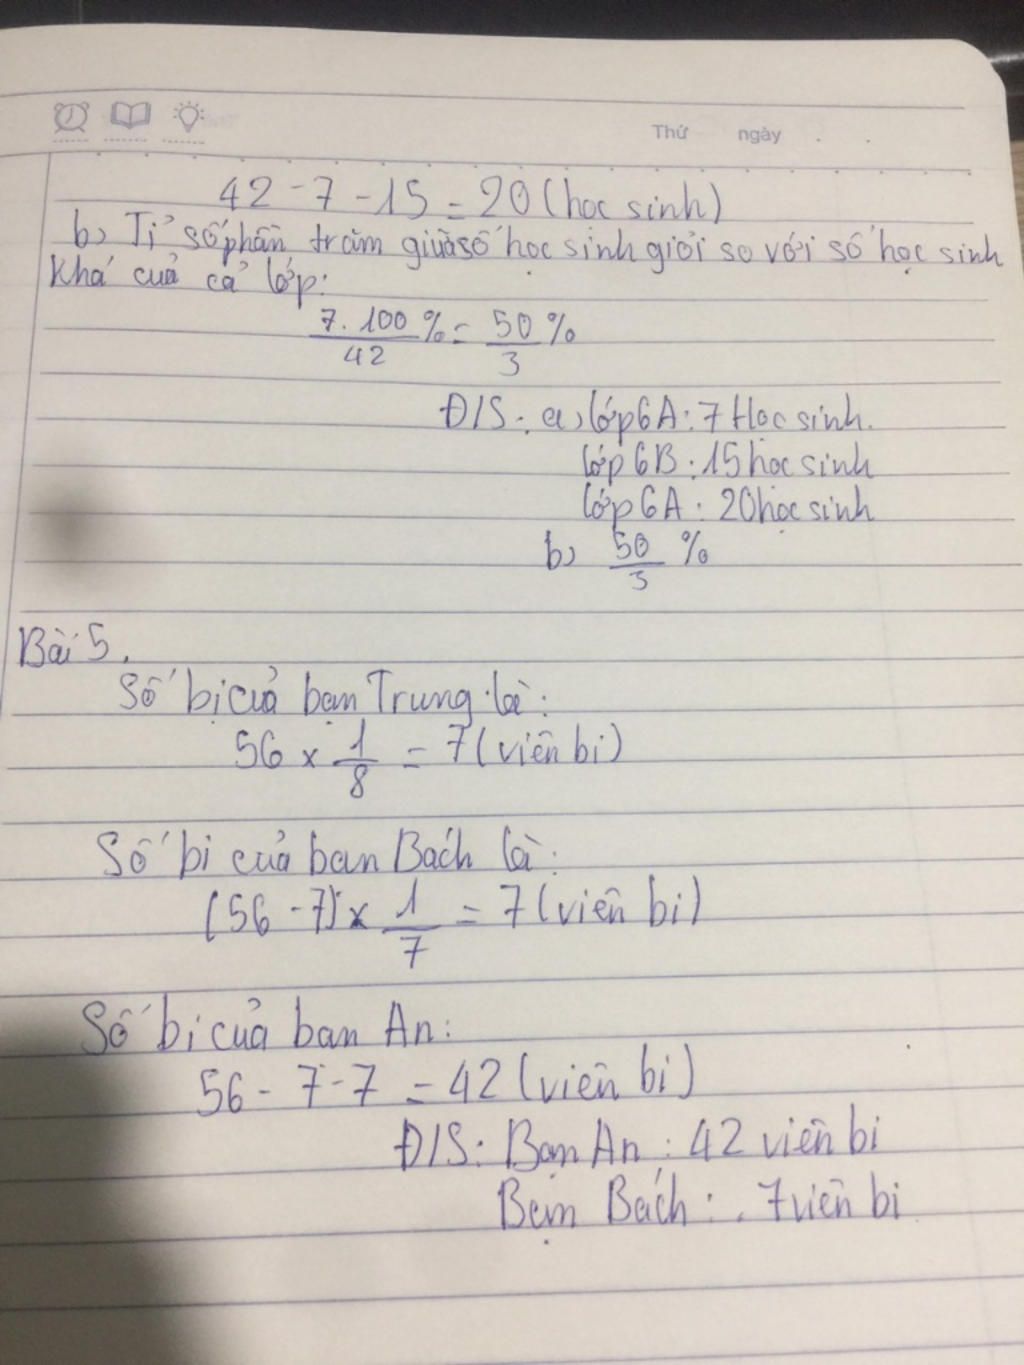 Thứ ngày . .
42 - 7 - 15 = 20 (học sinh)
b, Tỉ số phần trăm giữa số học sinh giỏi so với số học sinh
khá của cả lớp:
7.100/42 % = 50/3 %
Đ/S: a, lớp 6A: 7 Học sinh.
lớp 6B: 15 học sinh
lớp 6A: 20 học sinh
b, 50/3 %
Bài 5.
Số bị của bạn Trung là:
56 x 1/8 = 7 (viên bi)
Số bi của ban Bách là:
(56 - 7) x 1/7 = 7 (viên bi)
Số bi của ban An:
56 - 7 - 7 = 42 (viên bi)
Đ/S: Bạn An: 42 viên bi
Bạn Bách: 7 viên bi